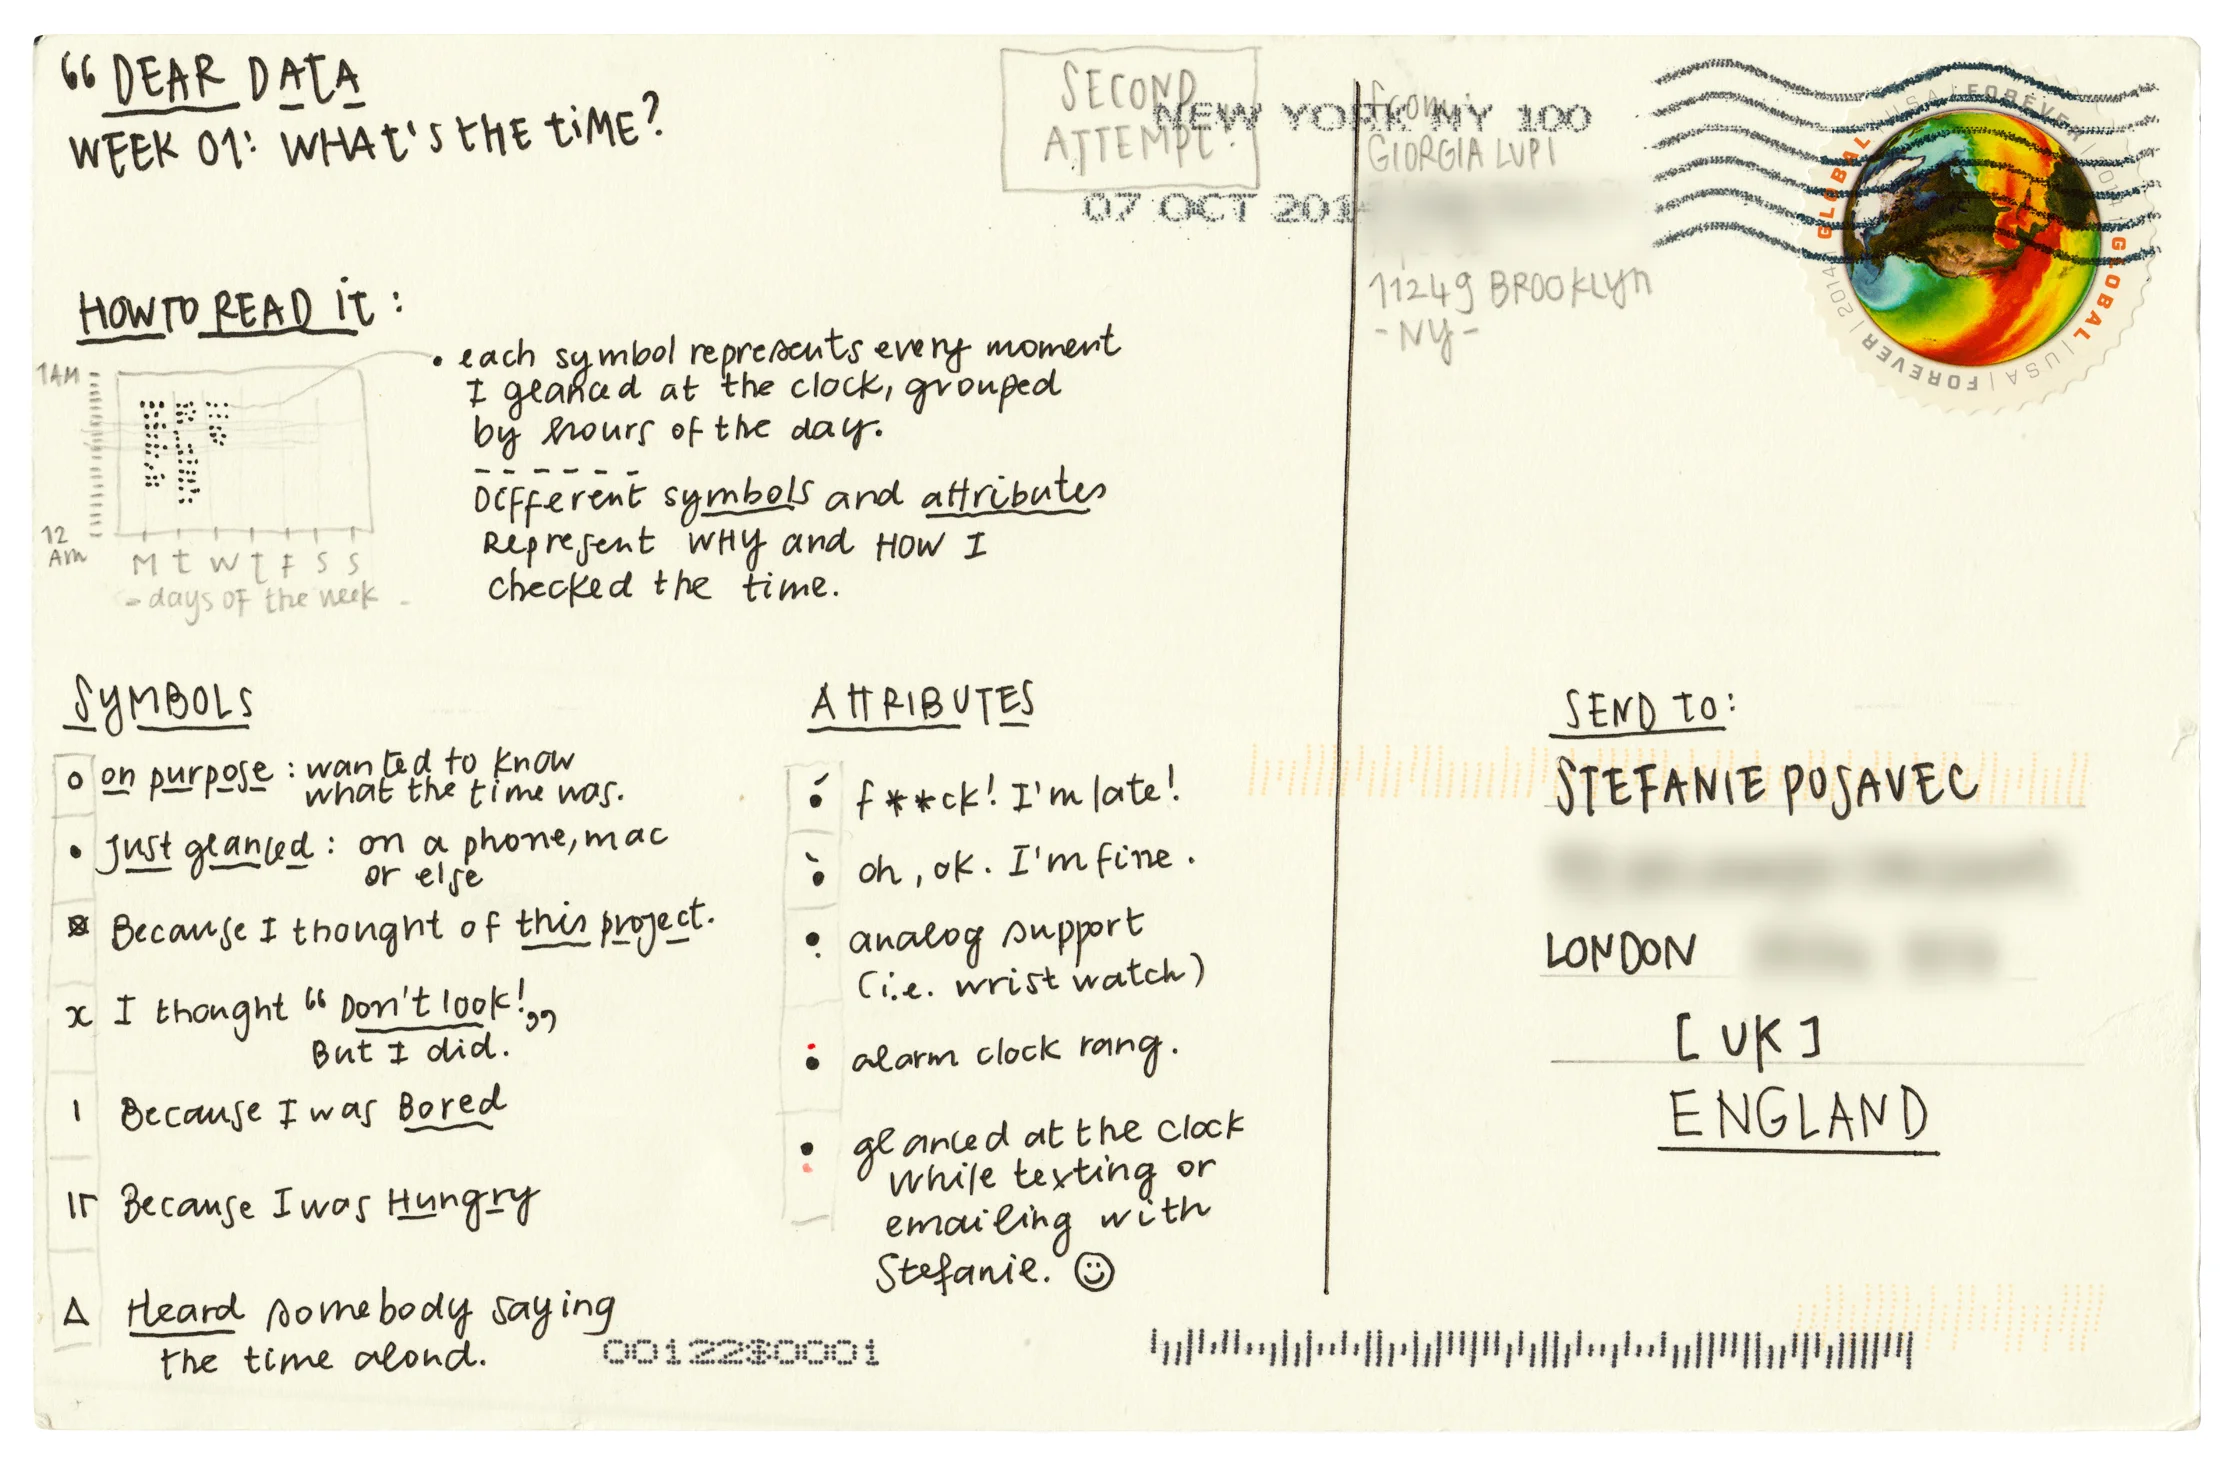 “ DEAR DATA
WEEK 01: WHAT'S THE TIME?
SECOND
ATTEMPT!
NEW YORK NY 100
07 OCT 201
from:
GIORGIA LUPI
11249 BROOKLYN
- NY -
GLOBAL | USA | FOREVER | 2014 | GLOBAL | USA | FOREVER | 2014
HOW TO READ IT:
1AM
12
AM
M T W T F S S
- days OF the week -
• each symbol represents every moment
I glanced at the clock, grouped
by hours of the day.
Different symbols and attributes
Represent WHY and HOW I
checked the time.
SYMBOLS
on purpose : wanted to know
what the time was.
Just glanced : on a phone, mac
or else
Because I thought of this project.
I thought “ Don't look! „
But I did.
Because I was Bored
Because I was Hungry
Heard somebody saying
the time aloud.
ATTRIBUTES
f**ck! I'm late!
oh, ok. I'm fine.
analog support
(i.e. wrist watch)
alarm clock rang.
glanced at the clock
while texting or
emailing with
Stefanie. ☺
SEND TO:
STEFANIE POSAVEC
LONDON
[UK]
ENGLAND
00122$0001